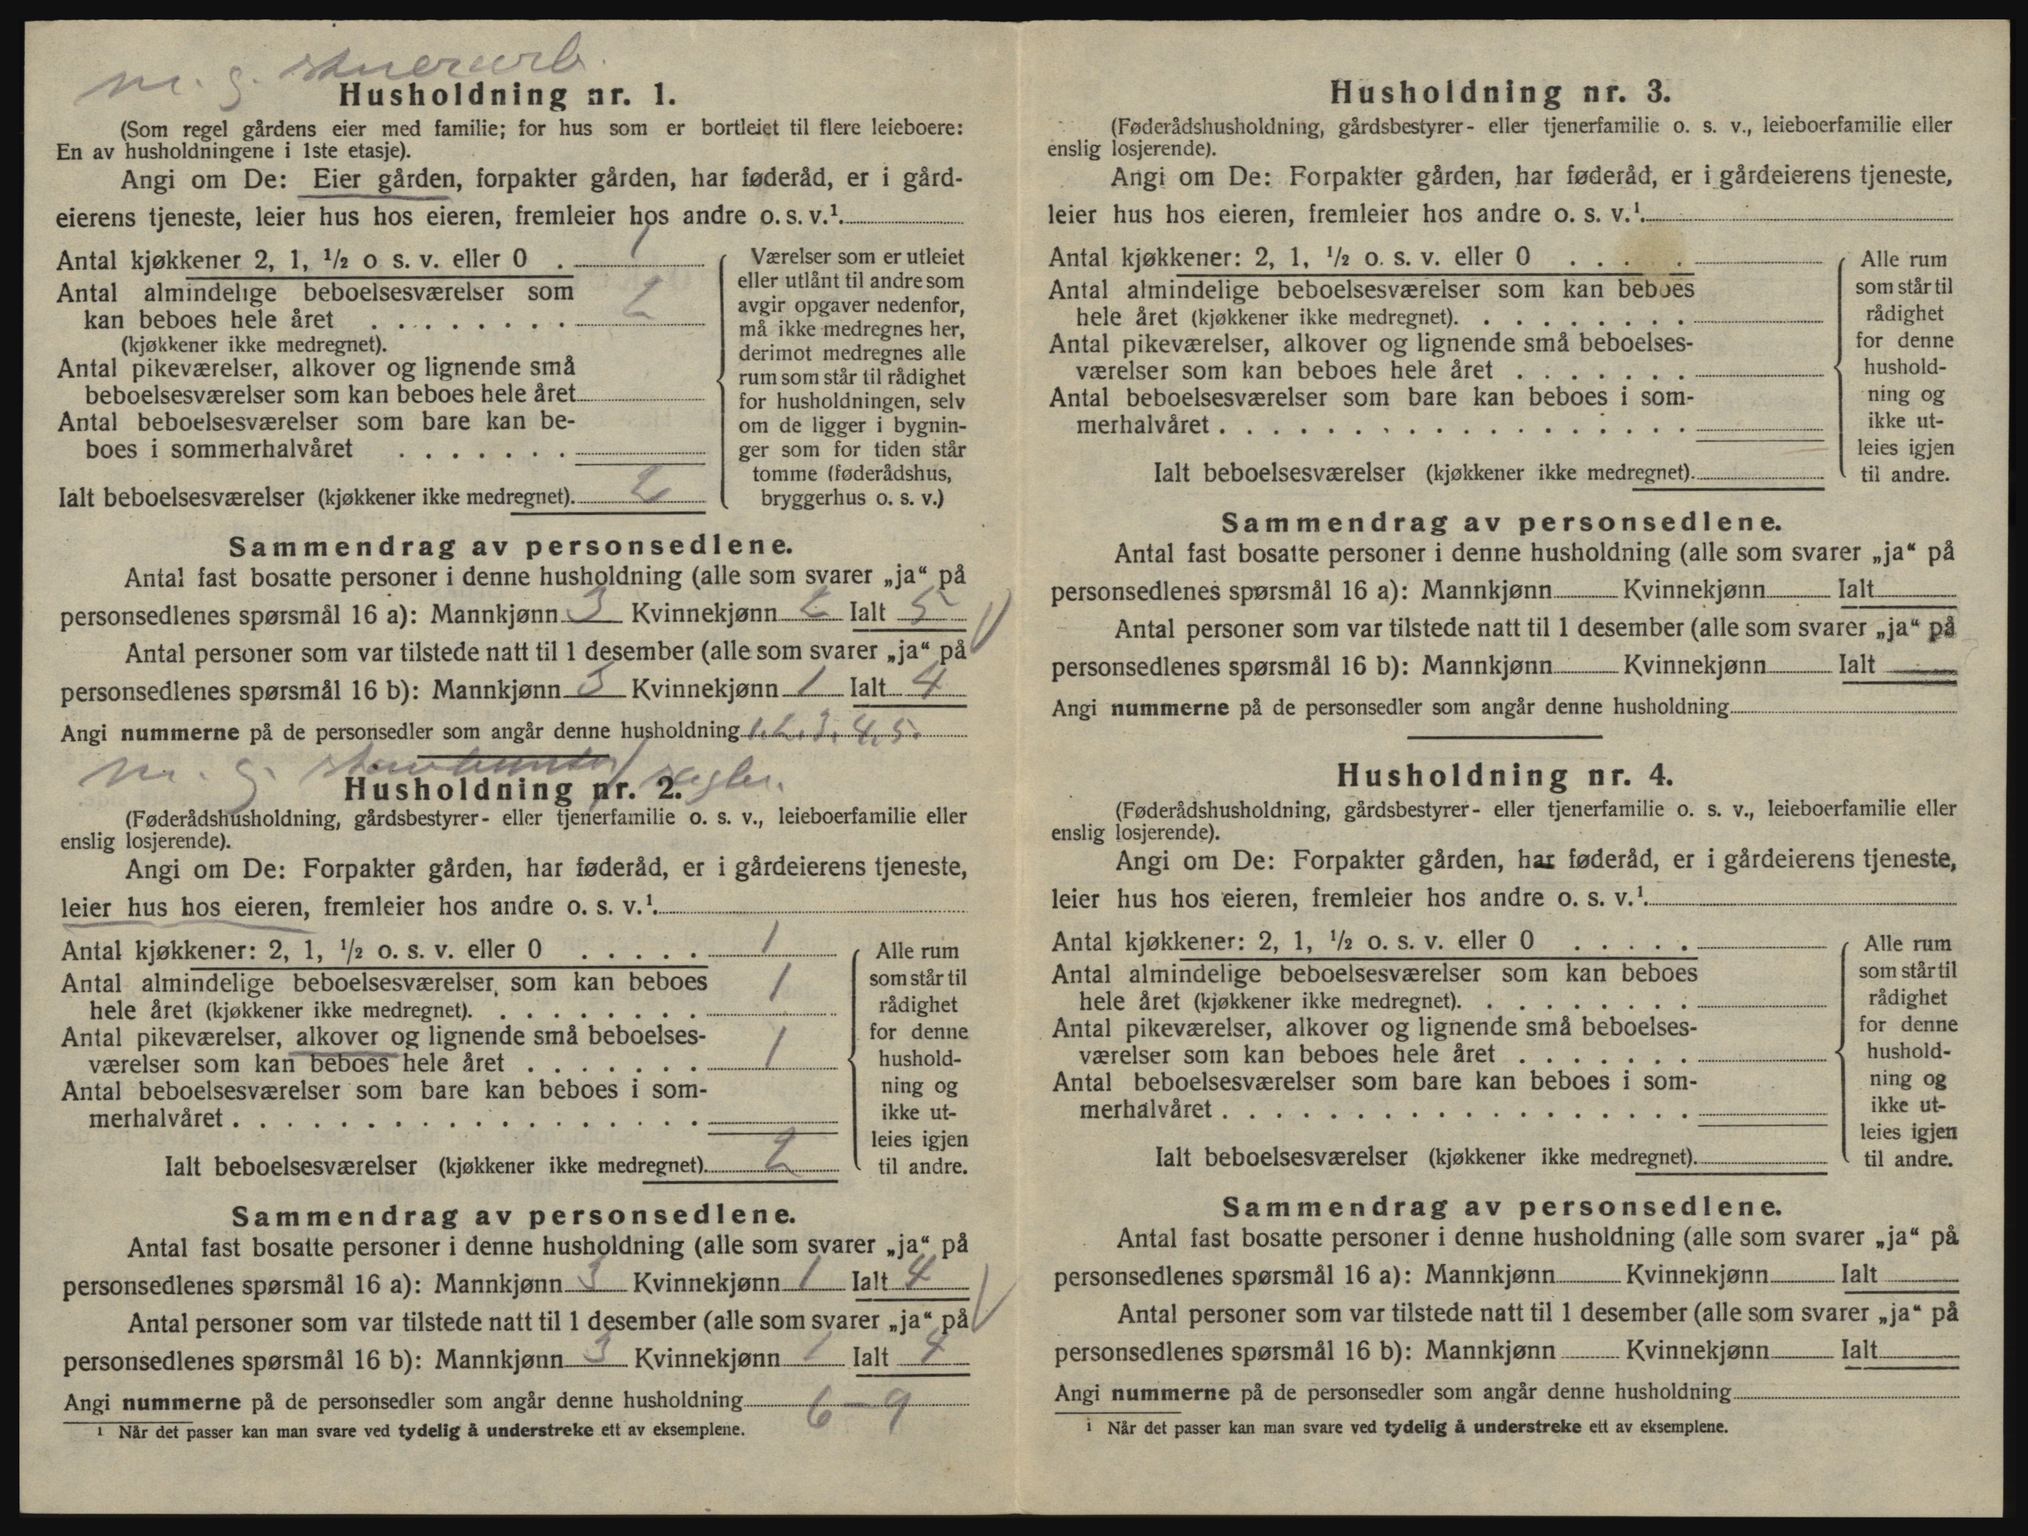 m. g. snerarb.
Husholdning nr. 1.
(Som regel gårdens eier med familie; for hus som er bortleiet til flere leieboere:
En av husholdningene i 1ste etasje).
Angi om De: Eier gården, forpakter gården, har føderåd, er i gård-
eierens tjeneste, leier hus hos eieren, fremleier hos andre o. s. v.¹.
Antal kjøkkener 2, 1, ½ o s. v. eller 0 . 1
Antal almindelige beboelsesværelser som
kan beboes hele året . . . . . . . . 2
(kjøkkener ikke medregnet).
Antal pikeværelser, alkover og lignende små
beboelsesværelser som kan beboes hele året
Antal beboelsesværelser som bare kan be-
boes i sommerhalvåret . . . . . . .
Ialt beboelsesværelser (kjøkkener ikke medregnet). 2
Værelser som er utleiet
eller utlånt til andre som
avgir opgaver nedenfor,
må ikke medregnes her,
derimot medregnes alle
rum som står til rådighet
for husholdningen, selv
om de ligger i bygnin-
ger som for tiden står
tomme (føderådshus,
bryggerhus o. s. v.)
Sammendrag av personsedlene.
Antal fast bosatte personer i denne husholdning (alle som svarer „ja“ på
personsedlenes spørsmål 16 a): Mannkjønn 3 Kvinnekjønn 2 Ialt 5
Antal personer som var tilstede natt til 1 desember (alle som svarer „ja“ på
personsedlenes spørsmål 16 b): Mannkjønn 3 Kvinnekjønn 1 Ialt 4
Angi nummerne på de personsedler som angår denne husholdning 1.2.3.4.5.
m. g.
Husholdning nr. 2.
(Føderådshusholdning, gårdsbestyrer- eller tjenerfamilie o. s. v., leieboerfamilie eller
enslig losjerende).
Angi om De: Forpakter gården, har føderåd, er i gårdeierens tjeneste,
leier hus hos eieren, fremleier hos andre o. s. v.¹.
Antal kjøkkener: 2, 1, ½ o. s. v. eller 0 . . . . . 1
Antal almindelige beboelsesværelser som kan beboes
hele året (kjøkkener ikke medregnet). . . . . . . . . 1
Antal pikeværelser, alkover og lignende små beboelses-
værelser som kan beboes hele året . . . . . . . 1
Antal beboelsesværelser som bare kan beboes i som-
merhalvåret . . . . . . . . . . . . . . . . . .
Ialt beboelsesværelser (kjøkkener ikke medregnet). 2
Alle rum
som står til
rådighet
for denne
hushold-
ning og
ikke ut-
leies igjen
til andre.
Sammendrag av personsedlene.
Antal fast bosatte personer i denne husholdning (alle som svarer „ja“ på
personsedlenes spørsmål 16 a): Mannkjønn 3 Kvinnekjønn 1 Ialt 4
Antal personer som var tilstede natt til 1 desember (alle som svarer „ja“ på
personsedlenes spørsmål 16 b): Mannkjønn 3 Kvinnekjønn 1 Ialt 4
Angi nummerne på de personsedler som angår denne husholdning 6-9
¹ Når det passer kan man svare ved tydelig å understreke ett av eksemplene.
Husholdning nr. 3.
(Føderådshusholdning, gårdsbestyrer- eller tjenerfamilie o. s. v., leieboerfamilie eller
enslig losjerende).
Angi om De: Forpakter gården, har føderåd, er i gårdeierens tjeneste,
leier hus hos eieren, fremleier hos andre o. s. v.¹.
Antal kjøkkener: 2, 1, ½ o. s. v. eller 0 . . . . .
Antal almindelige beboelsesværelser som kan beboes
hele året (kjøkkener ikke medregnet). . . . . . . . .
Antal pikeværelser, alkover og lignende små beboelses-
værelser som kan beboes hele året . . . . . . .
Antal beboelsesværelser som bare kan beboes i som-
merhalvåret . . . . . . . . . . . . . . . . . .
Ialt beboelsesværelser (kjøkkener ikke medregnet).
Alle rum
som står til
rådighet
for denne
hushold-
ning og
ikke ut-
leies igjen
til andre.
Sammendrag av personsedlene.
Antal fast bosatte personer i denne husholdning (alle som svarer „ja“ på
personsedlenes spørsmål 16 a): Mannkjønn Kvinnekjønn Ialt
Antal personer som var tilstede natt til 1 desember (alle som svarer „ja“ på
personsedlenes spørsmål 16 b): Mannkjønn Kvinnekjønn Ialt
Angi nummerne på de personsedler som angår denne husholdning
Husholdning nr. 4.
(Føderådshusholdning, gårdsbestyrer- eller tjenerfamilie o. s. v., leieboerfamilie eller
enslig losjerende).
Angi om De: Forpakter gården, har føderåd, er i gårdeierens tjeneste,
leier hus hos eieren, fremleier hos andre o. s. v.¹.
Antal kjøkkener: 2, 1, ½ o. s. v. eller 0 . . . . .
Antal almindelige beboelsesværelser som kan beboes
hele året (kjøkkener ikke medregnet). . . . . . . . .
Antal pikeværelser, alkover og lignende små beboelses-
værelser som kan beboes hele året . . . . . . .
Antal beboelsesværelser som bare kan beboes i som-
merhalvåret . . . . . . . . . . . . . . . . . .
Ialt beboelsesværelser (kjøkkener ikke medregnet).
Alle rum
som står til
rådighet
for denne
hushold-
ning og
ikke ut-
leies igjen
til andre.
Sammendrag av personsedlene.
Antal fast bosatte personer i denne husholdning (alle som svarer „ja“ på
personsedlenes spørsmål 16 a): Mannkjønn Kvinnekjønn Ialt
Antal personer som var tilstede natt til 1 desember (alle som svarer „ja“ på
personsedlenes spørsmål 16 b): Mannkjønn Kvinnekjønn Ialt
Angi nummerne på de personsedler som angår denne husholdning
¹ Når det passer kan man svare ved tydelig å understreke ett av eksemplene.